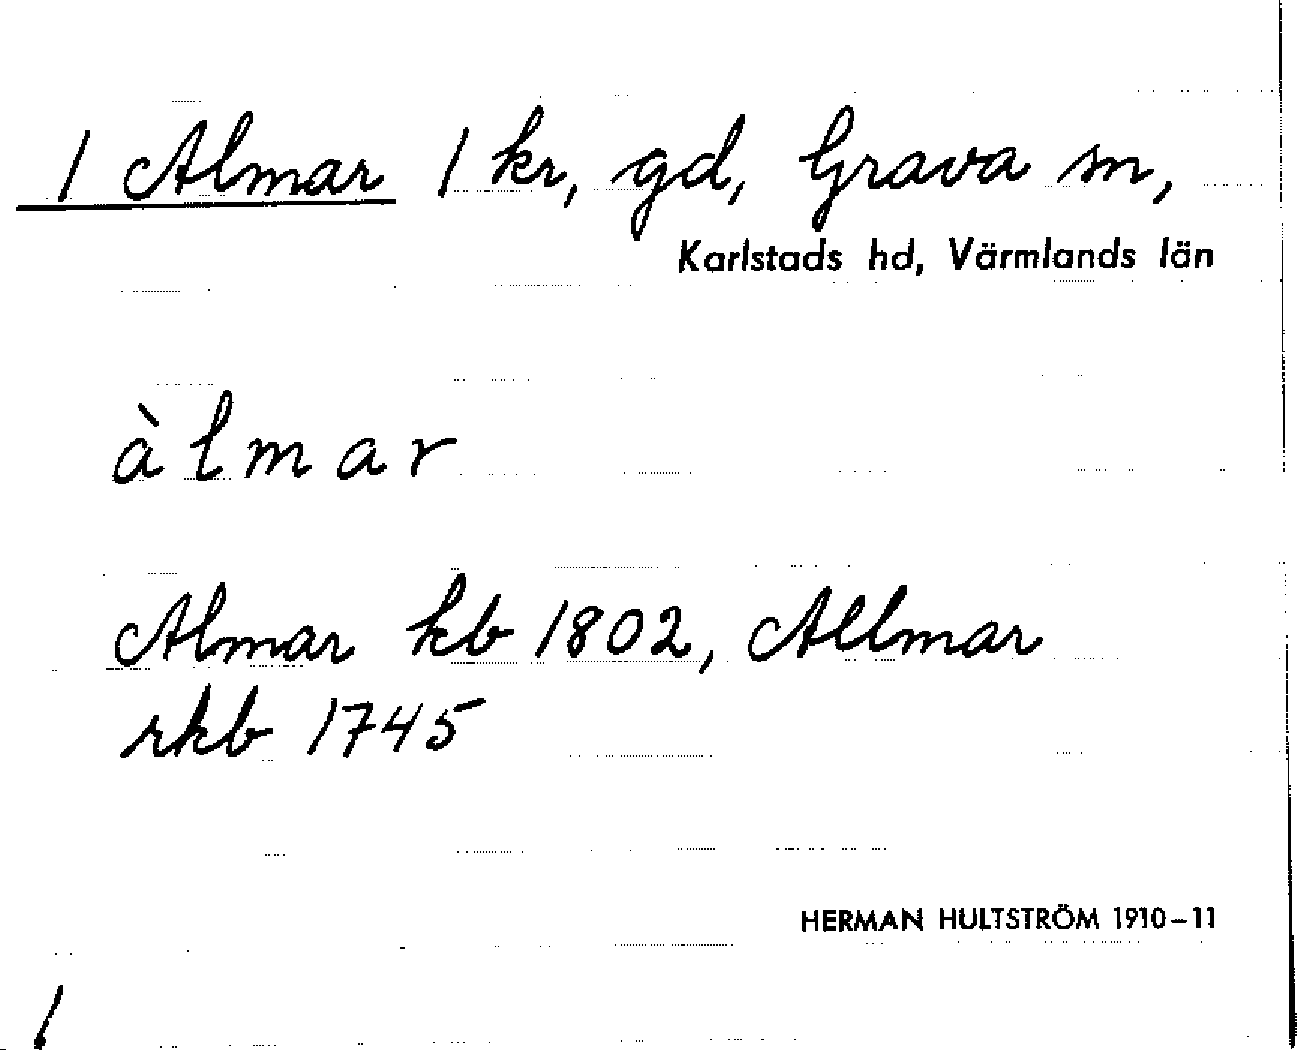 1 Almar 1 kr, gd, Grava sn,
Karlstads hd, Värmlands län
àlmar
Almar kb 1802, Allmar
rkb 1745
HERMAN HULTSTRÖM 1910–11